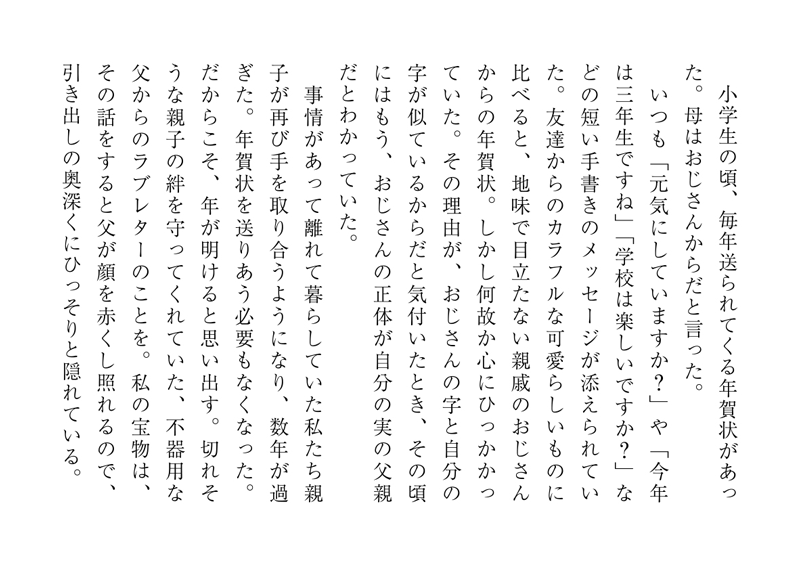 小学生の頃、毎年送られてくる年賀状があっ
た。母はおじさんからだと言った。
いつも「元気にしていますか？」や「今年
は三年生ですね」「学校は楽しいですか？」な
どの短い手書きのメッセージが添えられてい
た。友達からのカラフルな可愛らしいものに
比べると、地味で目立たない親戚のおじさん
からの年賀状。しかし何故か心にひっかかっ
ていた。その理由が、おじさんの字と自分の
字が似ているからだと気付いたとき、その頃
にはもう、おじさんの正体が自分の実の父親
だとわかっていた。
事情があって離れて暮らしていた私たち親
子が再び手を取り合うようになり、数年が過
ぎた。年賀状を送りあう必要もなくなった。
だからこそ、年が明けると思い出す。切れそ
うな親子の絆を守ってくれていた、不器用な
父からのラブレターのことを。私の宝物は、
その話をすると父が顔を赤くし照れるので、
引き出しの奥深くにひっそりと隠れている。